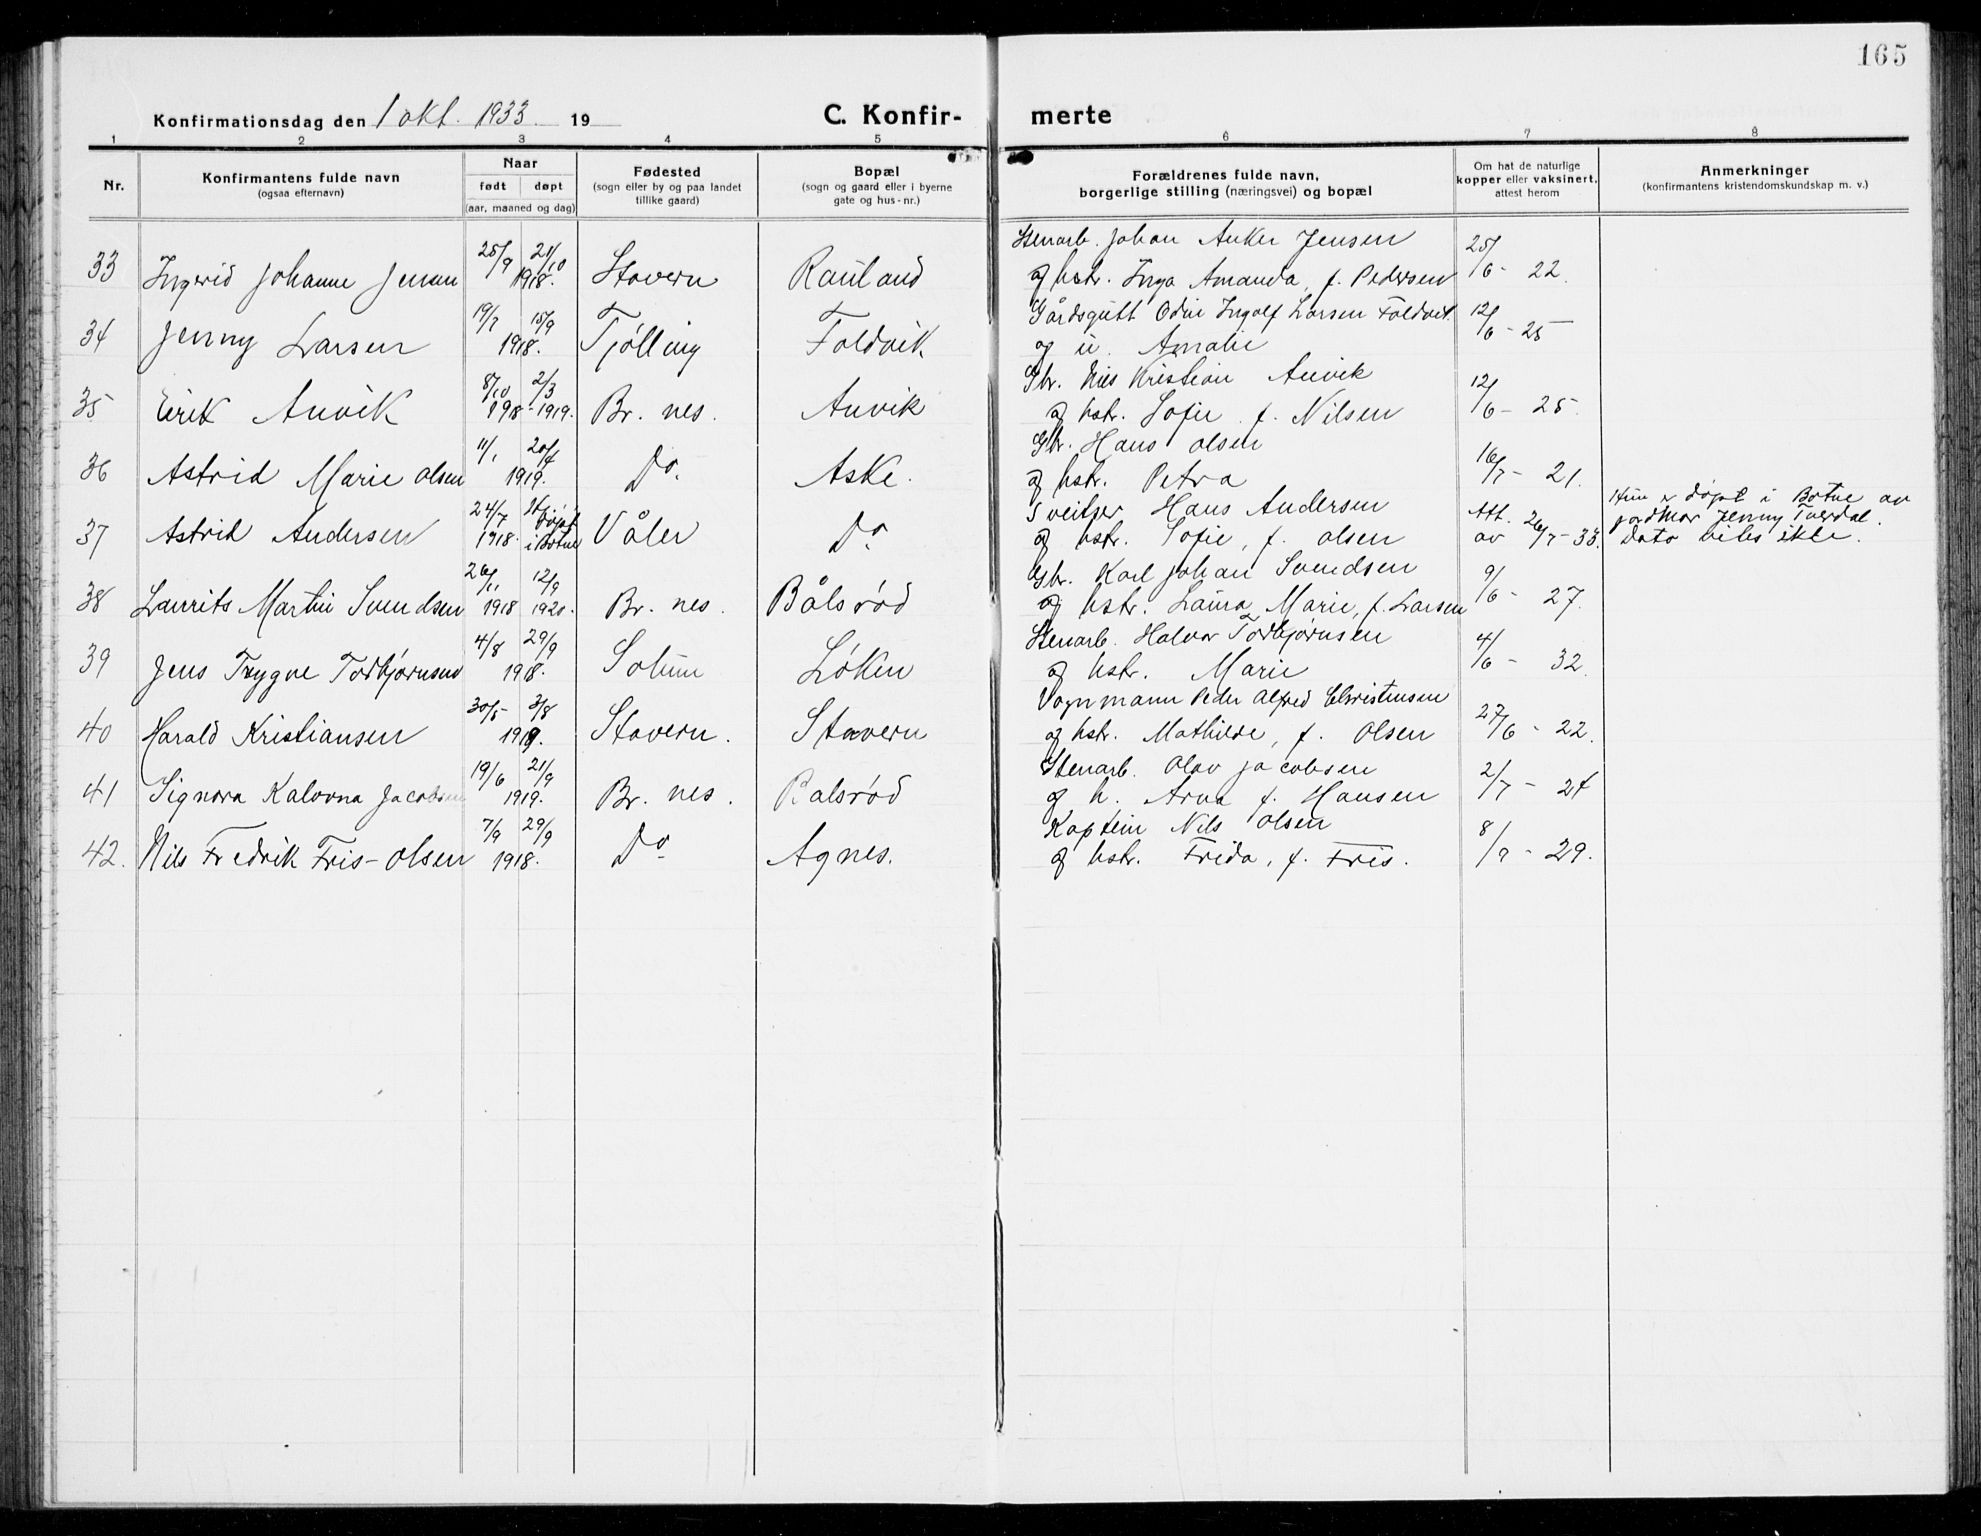 165
Konfirmationsdag den 1 okt. 1933 19
C. Konfir-
merte
1 2 3 4 5 6 7 8
Nr.
Konfirmantens fulde navn
(ogsaa efternavn)
Naar
født døpt
(aar, maaned og dag)
Fødested
(sogn eller by og paa landet
tillike gaard)
Bopæl
(sogn og gaard eller i byerne
gate og hus-nr.)
Forældrenes fulde navn,
borgerlige stilling (næringsvei) og bopæl
Om hat de naturlige
kopper eller vaksinert,
attest herom
Anmerkninger
(konfirmantens kristendomskundskap m. v.)
Stenarb. Johan Anker Jensen
33 Ingerid Johanne Jensen 25/9 21/10 1918. Stavern Rauland og hstr. Inga Amanda, f. Pedersen 25/6 - 22.
Gårdsgutt Odin Ingolf Larsen Foldvik.
34 Jenny Larsen 19/7 15/9 1918. Tjølling Foldvik og u. Amalie 12/6 - 25
Gbr. Nils Kristian Anvik
35 Eirik Anvik 8/10 2/3 1918 - 1919. Br. nes. Anvik og hstr. Sofie f. Nilsen 12/6 - 25.
Gbr. Hans Olsen
36 Astrid Marie Olsen 11/1 20/4 1919. Do. Aske. og hstr. Petra 16/7 - 21.
Sveitser Hans Andersen
37 Astrid Andersen 24/7 1918. døpt i Botne Våler Do og hstr. Sofie, f. Olsen Att. av 26/7 - 33.
Hun er døpt i Botne av
jordmor Jenny Tverdal.
Dato vites ikke.
Gbr. Karl Johan Svendsen
38 Laurits Martin Svendsen 26/11 12/9 1918 1920. Br. nes. Bålsrød og hstr. Laura Marie, f. Larsen 9/6 - 27.
Stenarb. Halvor Torbjørnsen
39 Jens Trygve Torbjørnsen 4/8 29/9 1918. Solum Løken og hstr. Marie 4/6 - 32.
Vognmann Peder Alfred Christensen
40 Harald Kristiansen 30/5 3/8 1919. Stavern. Stavern og hstr. Mathilde, f. Olsen 27/6 - 22.
Stenarb. Olav Jacobsen
41 Signora Kalovna Jacobsen 19/6 21/9 1919. Br. nes. Balsrød og h. Arna f. Hansen 2/7 - 24
Kaptein Nils Olsen
42. Nils Fredrik Fris-Olsen 7/9 29/9 1918. Do Agnes. og hstr. Frida, f. Fris. 8/9 - 29.